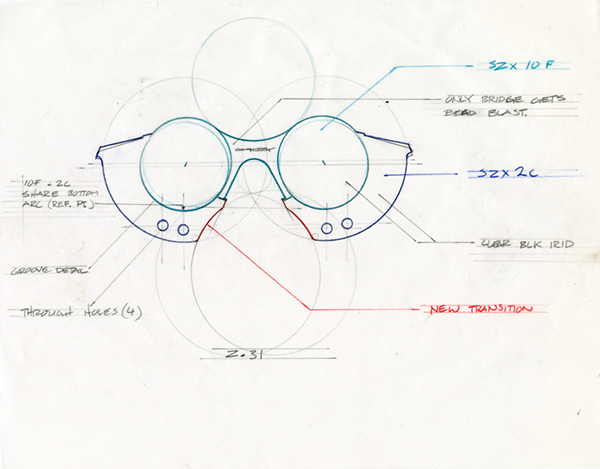 SZX 10F
ONLY BRIDGE GETS
BEAD BLAST.
10F + 2C
SHARE BOTTOM
ARC (REF. PI)
SZX 2C
CLEAR BLK IRID
GROOVE DETAIL
THROUGH HOLES (4)
NEW TRANSITION
2.31